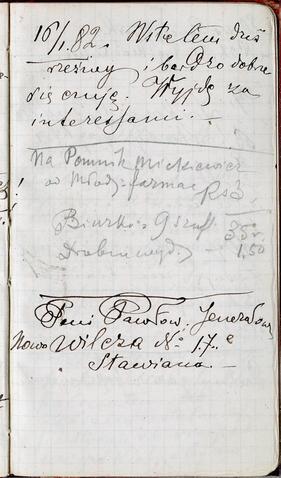 16/1.82. Wstałem dziś
rzeźwy i bardzo dobrze
się czuję. Wyjdę za
interessami. —
Na Pomnik Mickiewicz
od Młodz: farmac Rs 3.
Biurko i 9 szufl 35 r
Drobne wyd. — 1,50
Pani Pawłow. Jenerałowa
Nowo Wilcza No. 17.e
Stawiana —